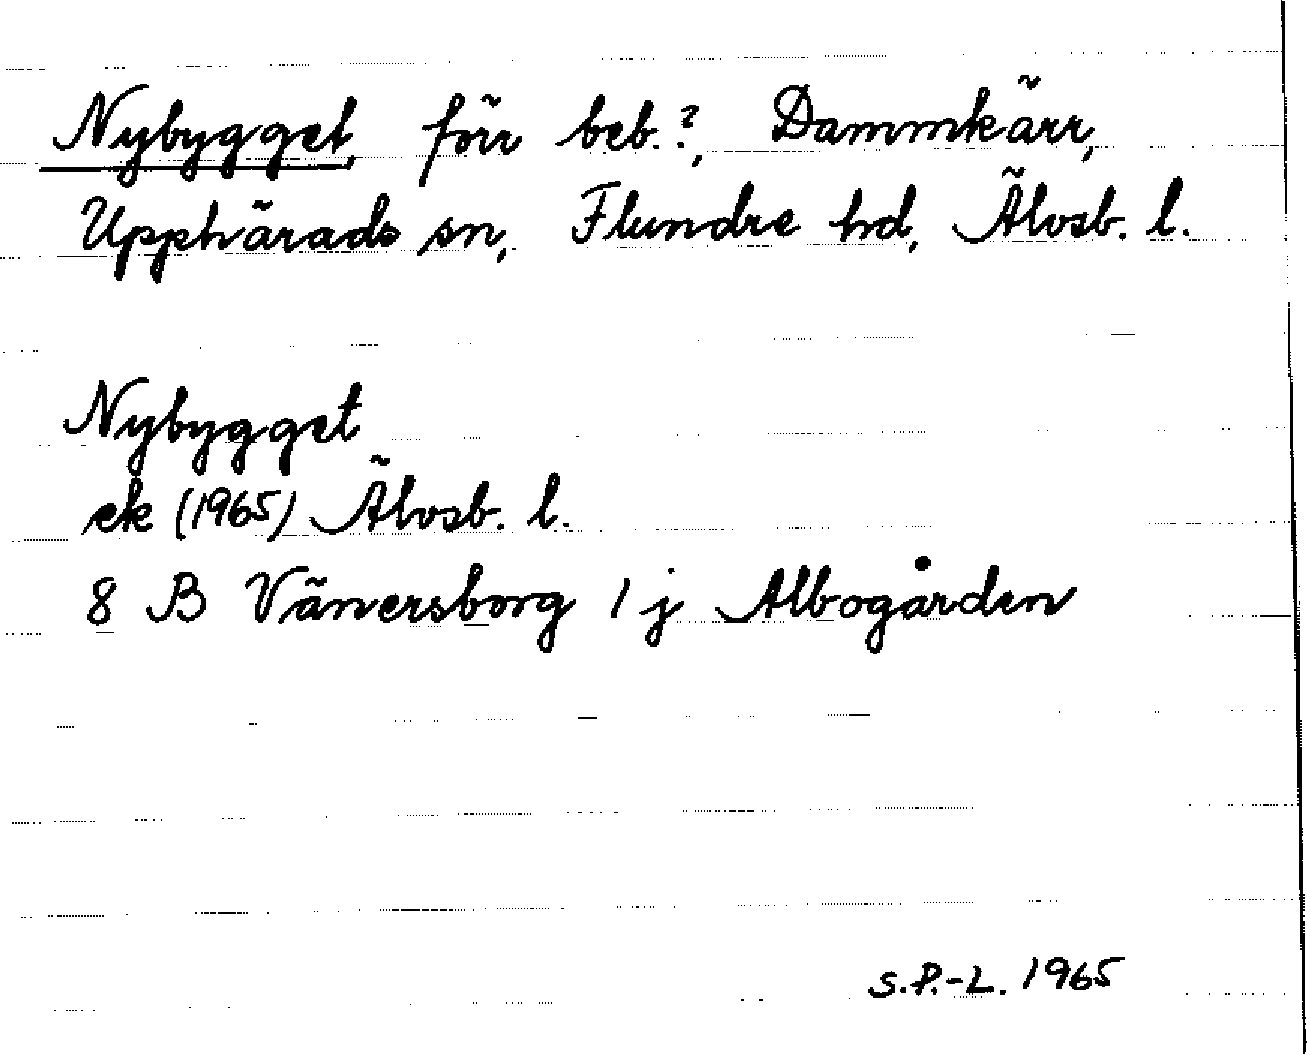 Nybygget, förr beb.?, Dammkärr,
Upphärads sn, Flundre hd, Älvsb. l.
Nybygget
ek (1965) Älvsb. l.
8 B Vänersborg 1 j Albogården
S.P.-L. 1965